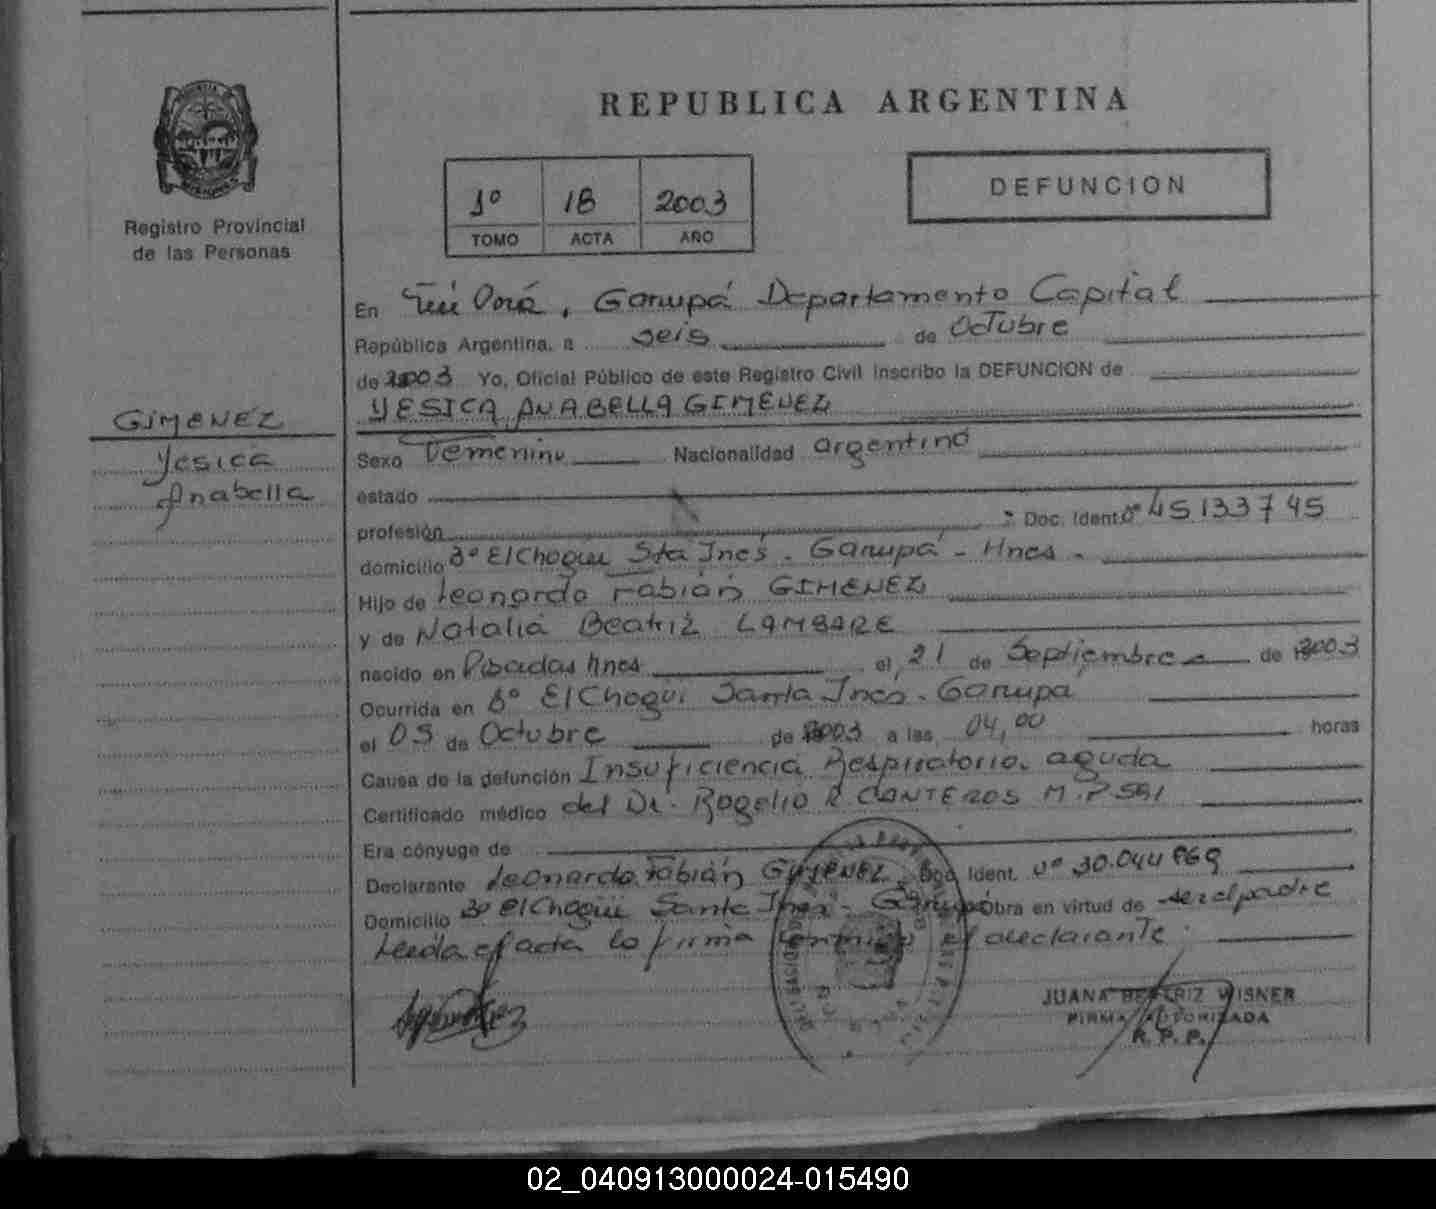 REPUBLICA ARGENTINA
1º 18 2003
TOMO ACTA AÑO
DEFUNCION
Registro Provincial
de las Personas
GIMENEZ
Yesica
Anabella
En Ñu Porá, Garupá Departamento Capital
República Argentina, a seis de Octubre
de 2003 Yo, Oficial Público de este Registro Civil inscribo la DEFUNCION de
YESICA ANABELLA GIMENEZ
Sexo Femenino Nacionalidad argentina
estado
profesión Doc. Ident. nº 45133745
domicilio Bº El Chogui Sta Inés - Garupá - Mnes -
Hijo de Leonardo Fabián GIMENEZ
y de Natalia Beatriz LAMBARE
nacido en Posadas Mnes el 21 de Septiembre de 2003
Ocurrida en Bº El Chogui Santa Inés - Garupá
el 05 de Octubre de 2003 a las 04,00 horas
Causa de la defunción Insuficiencia Respiratoria aguda
Certificado médico del Dr. Rogelio R CANTEROS M.P 551
Era cónyuge de
Declarante Leonardo Fabián GIMENEZ Doc. Ident. nº 30.044.869
Domicilio Bº El Chogui Santa Inés - Garupá Obra en virtud de ser el padre
Leída el acta la firma conmigo el declarante.
JUANA BEATRIZ WISNER
FIRMA AUTORIZADA
R. P. P.
02_040913000024-015490